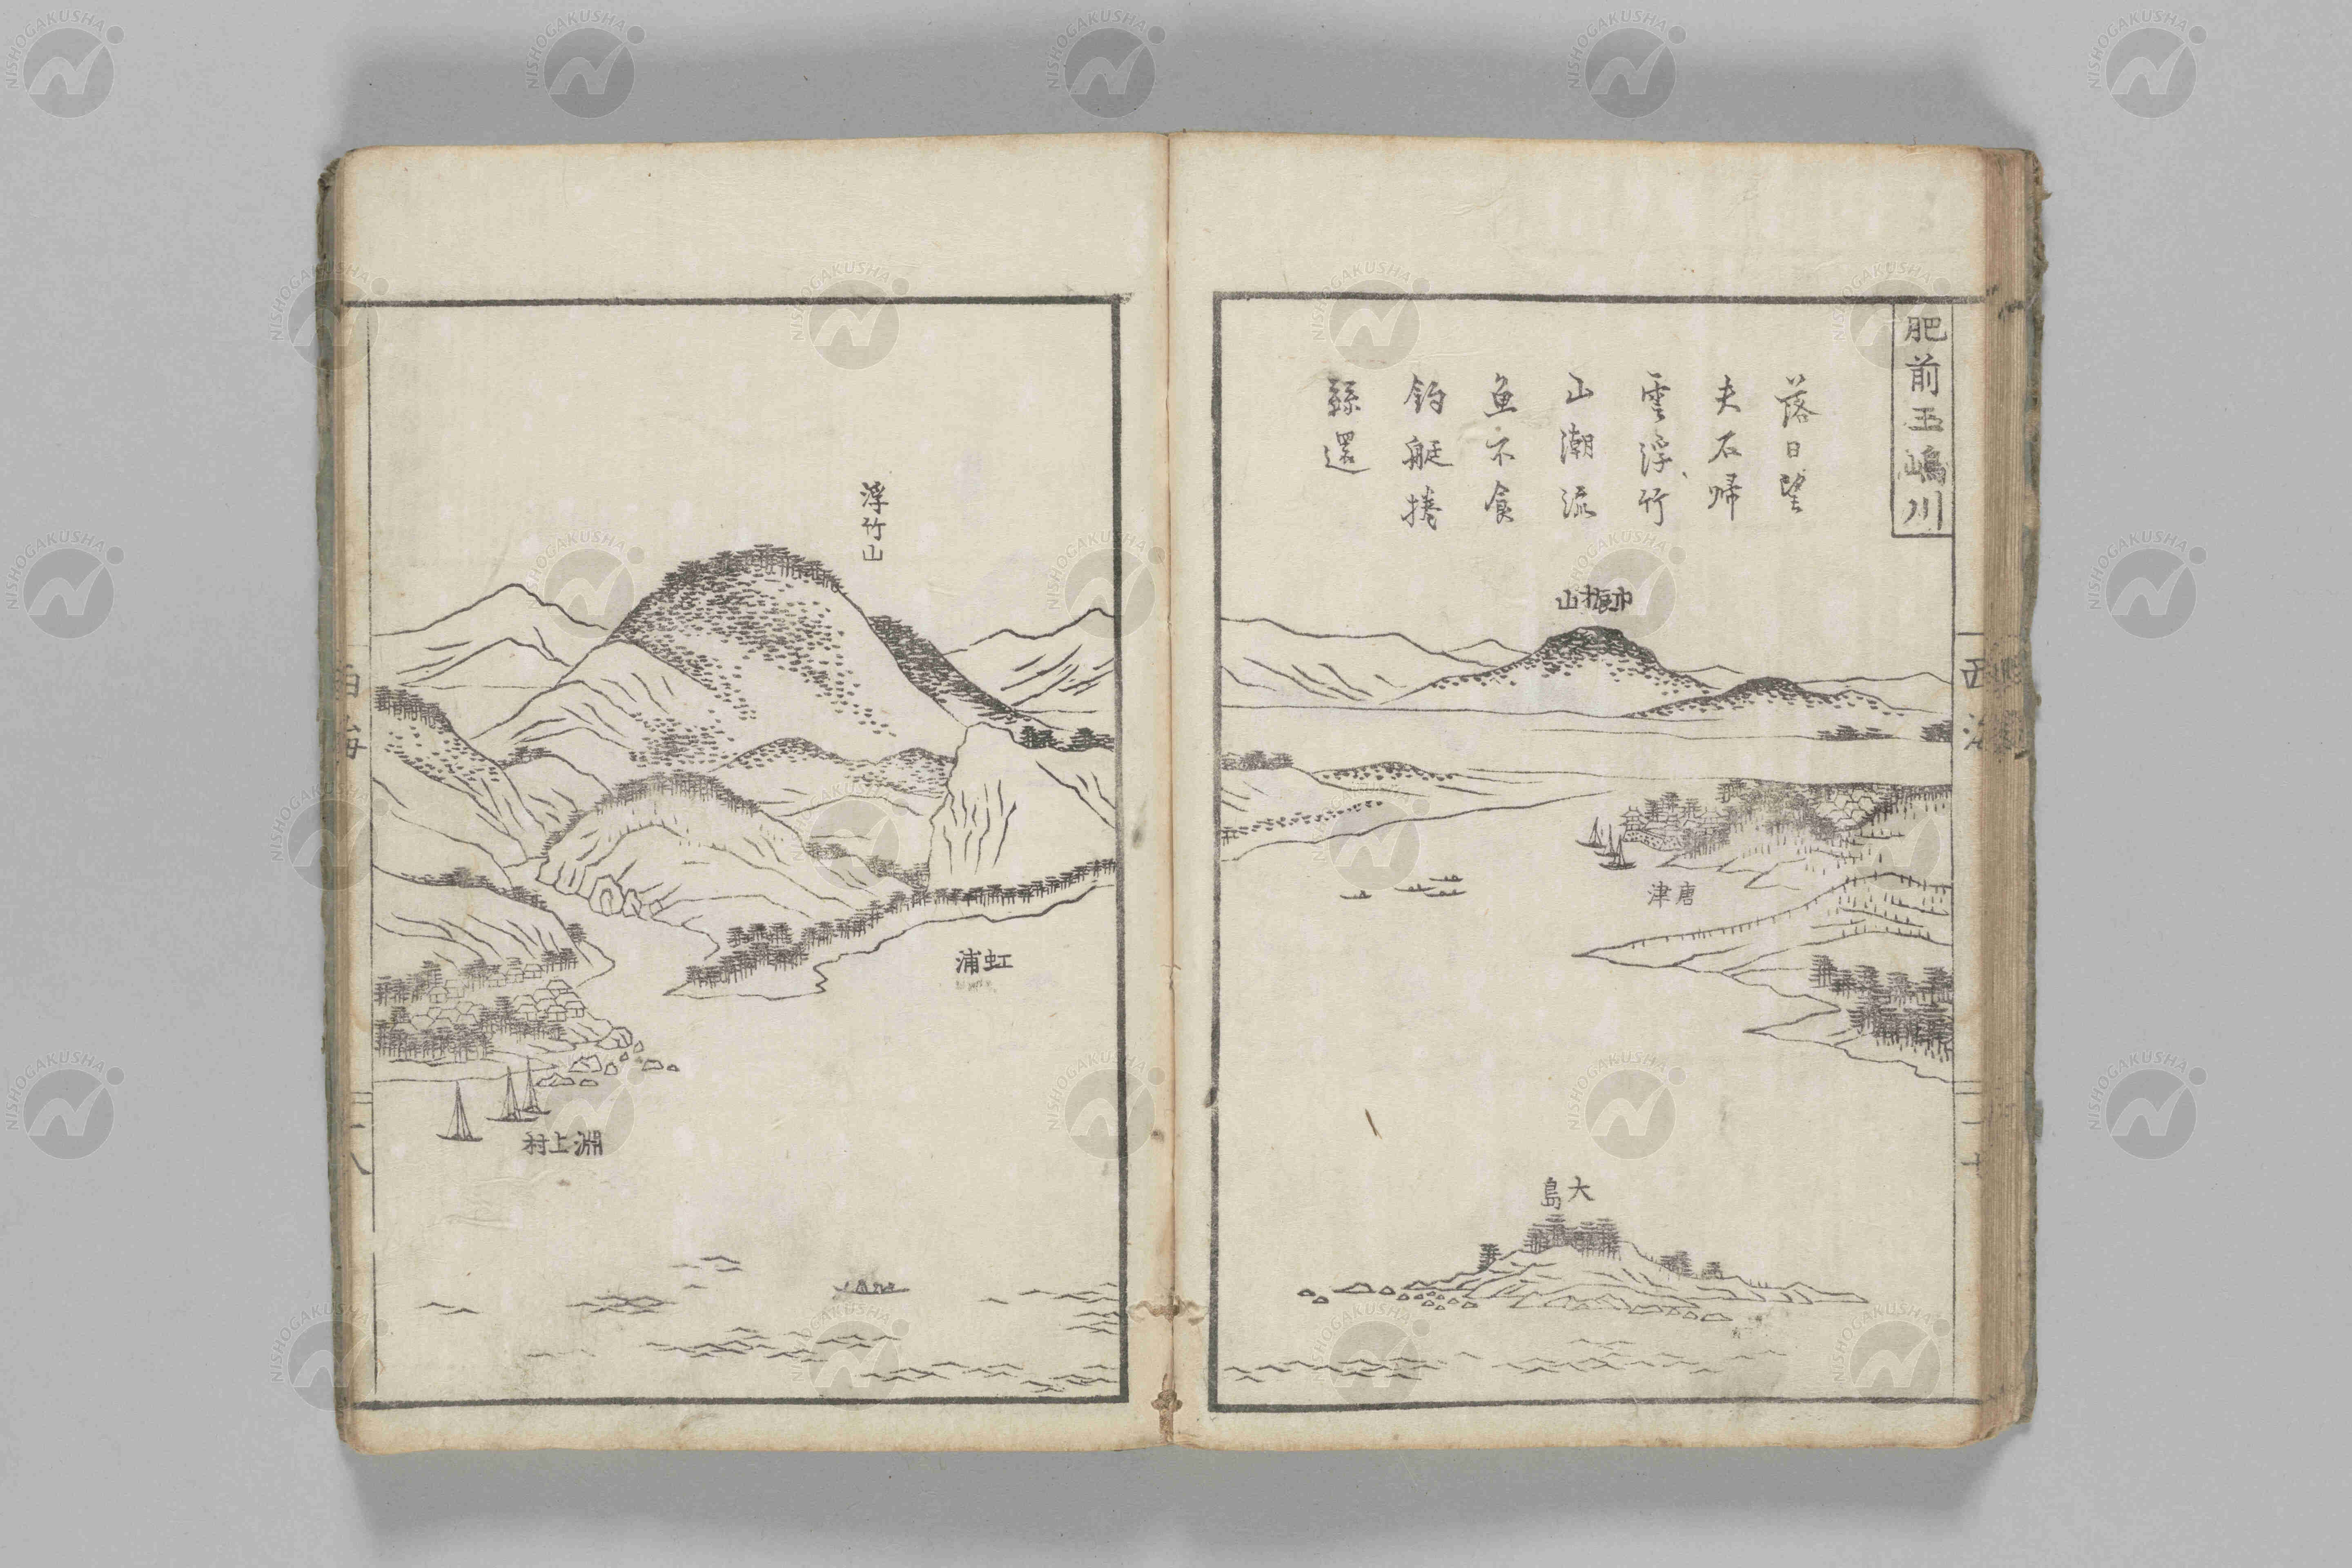 肥前玉嶋川
落日望
夫石歸
雲浮竹
山潮流
魚不食
釣艇捲
繇還
巾振山
唐津
大島
浮竹山
虹浦
淵上村
NISHOGAKUSHA